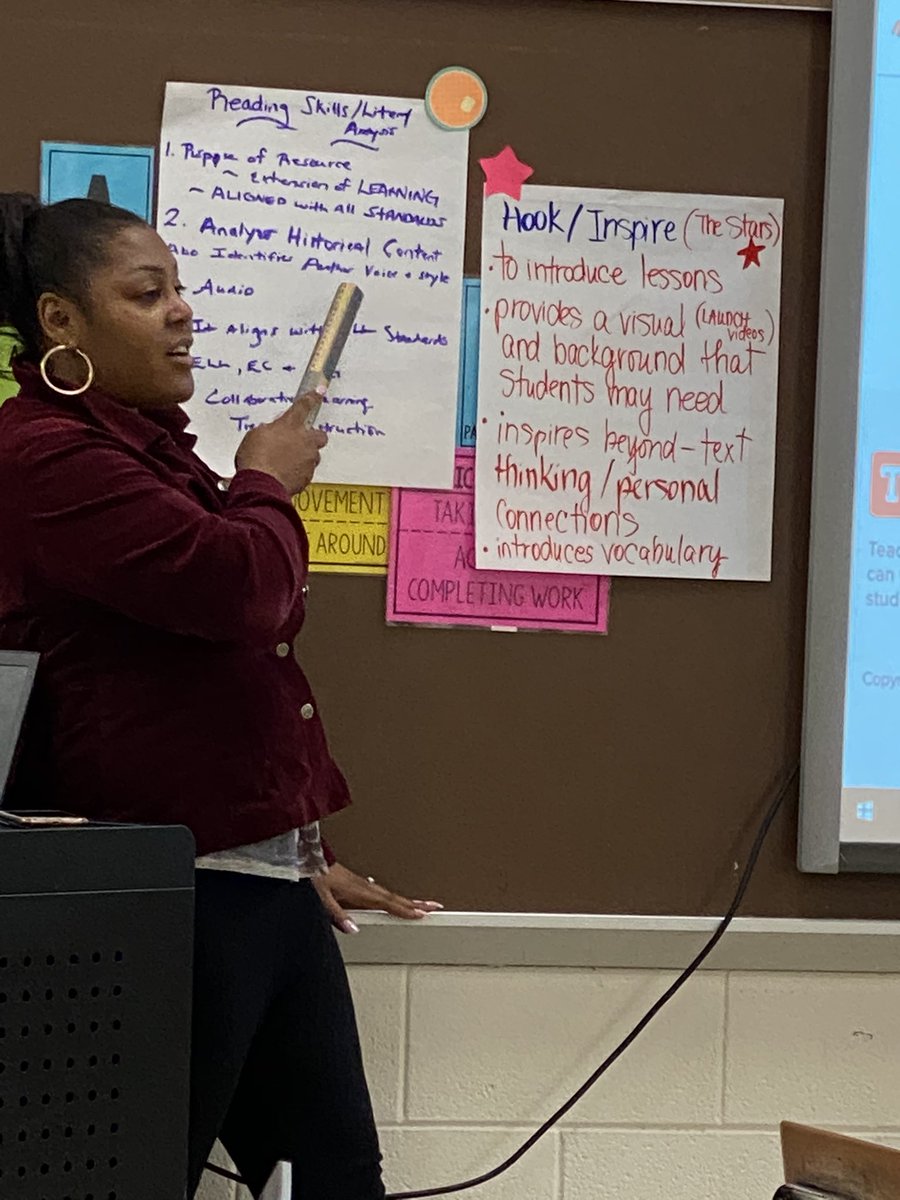 Reading Skills/Literary
Analysis
1. Purpose of Resource
~ Extension of LEARNING
~ ALIGNED with All STANDARDS
2. Analyze Historical Content
Also Identifies Author Voice + style
- Audio
It Aligns with Standards
ELL, EC +
Collaborative Learning
MOVEMENT
AROUND
COMPLETING WORK
Hook/Inspire (The Stars)
• to introduce lessons
• provides a visual (LAUNCH
videos)
and background that
students may need
• inspires beyond-text
thinking/personal
connections
• introduces vocabulary
can
Copy